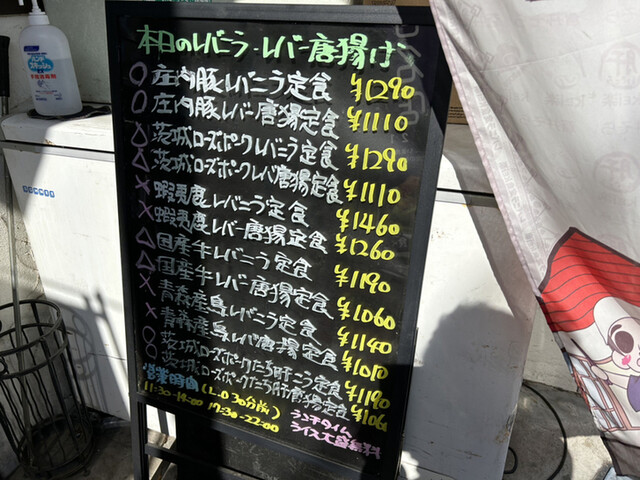 本日のレバニラ・レバー唐揚げ
○庄内豚レバニラ定食 ¥1290
○庄内豚レバー唐揚定食 ¥1110
△茨城ローズポークレバニラ定食 ¥1290
△茨城ローズポークレバ唐揚定食 ¥1110
×蝦夷鹿レバニラ定食 ¥1460
×蝦夷鹿レバー唐揚定食 ¥1260
△国産牛レバニラ定食 ¥1190
△国産牛レバー唐揚定食 ¥1060
×青森産鳥レバニラ定食 ¥1140
×青森産鳥レバ唐揚定食 ¥1010
○茨城ローズポークたち肝ニラ定食 ¥1190
○茨城ローズポークたち肝唐揚定食 ¥1060
営業時間 (L.O 30分前)
11:30-14:00 17:30-22:00
ランチタイム
ライス大盛無料